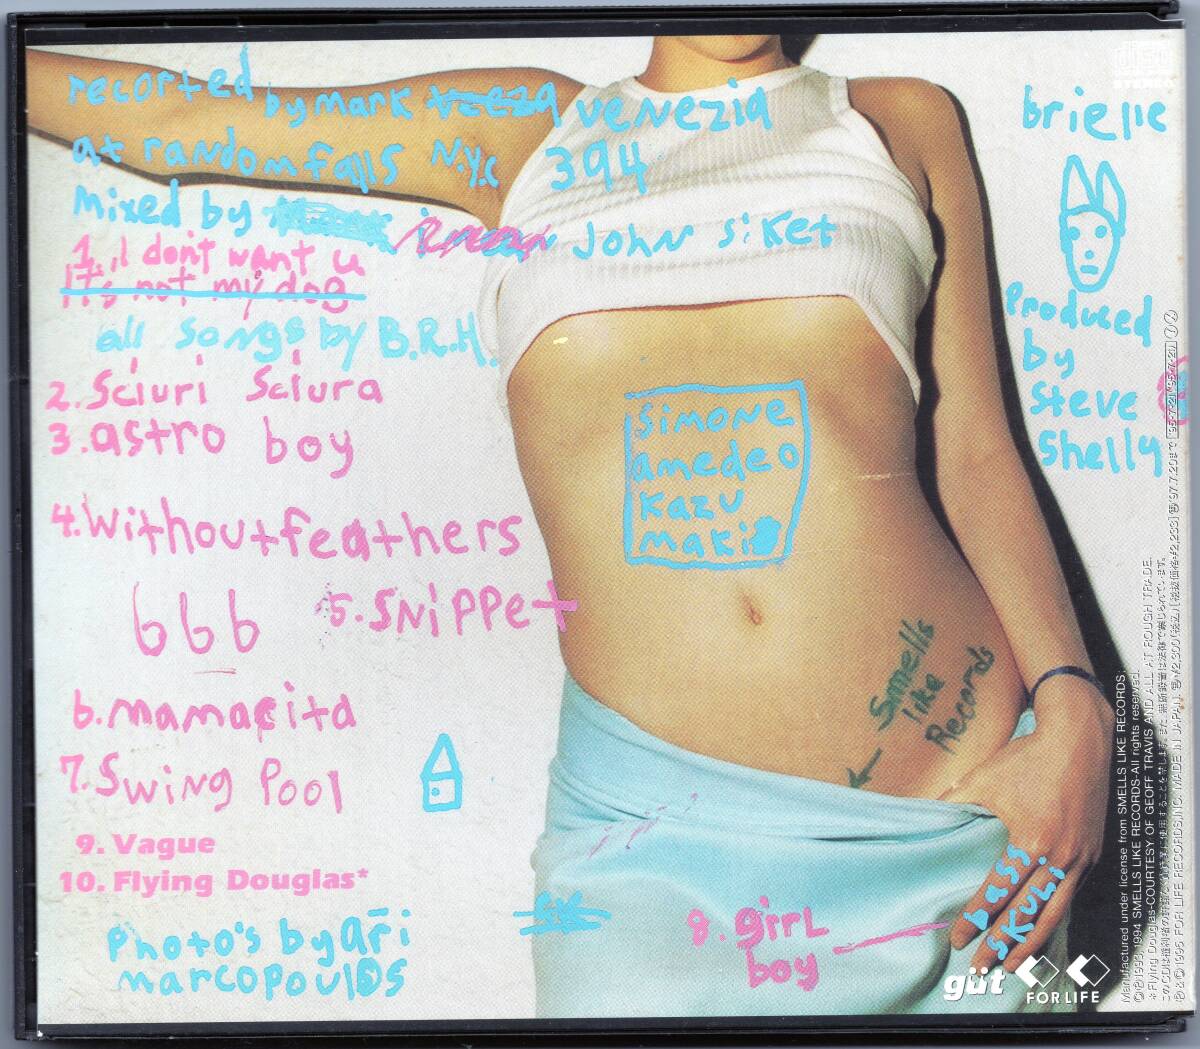 recorted by mark venezia
at randomfalls N.Y.C 394
mixed by John siket
1. I dont want u
It's not my dog
all songs by B.R.H.
2. Sciuri Sciura
3. astro boy
4. Without feathers
666
5. Snippet
6. mamacita
7. Swing Pool
9. Vague
10. Flying Douglas*
Photo's by ari
marcopoulos
SK
8. girl
boy
simone
amedeo
kazu
maki
Smells
like
Records
bass
skuli
brielle
Produced
by
Steve
Shelly
STEREO
güt
FOR LIFE
Manufactured under license from SMELLS LIKE RECORDS;
Ⓒ Ⓟ1993, 1994 SMELLS LIKE RECORDS-All rights reserved.
*Flying Douglas-COURTESY OF GEOFF TRAVIS AND ALL AT ROUGH TRADE.
Ⓟ & Ⓒ 1995 FOR LIFE RECORDS, INC. MADE IN JAPAN.